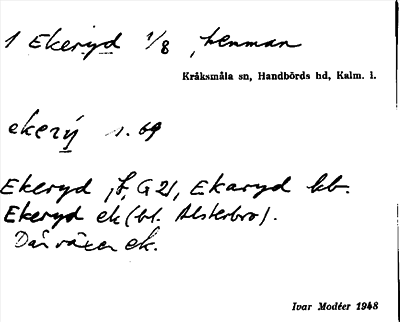 1 Ekeryd 1/8, hemman
Kråksmåla sn, Handbörds hd, Kalm. l.
ekerý 1.69
Ekeryd, f, G 21, Ekaryd kb.
Ekeryd ek (bl. Alsterbro).
Där växer ek.
Ivar Modéer 1948